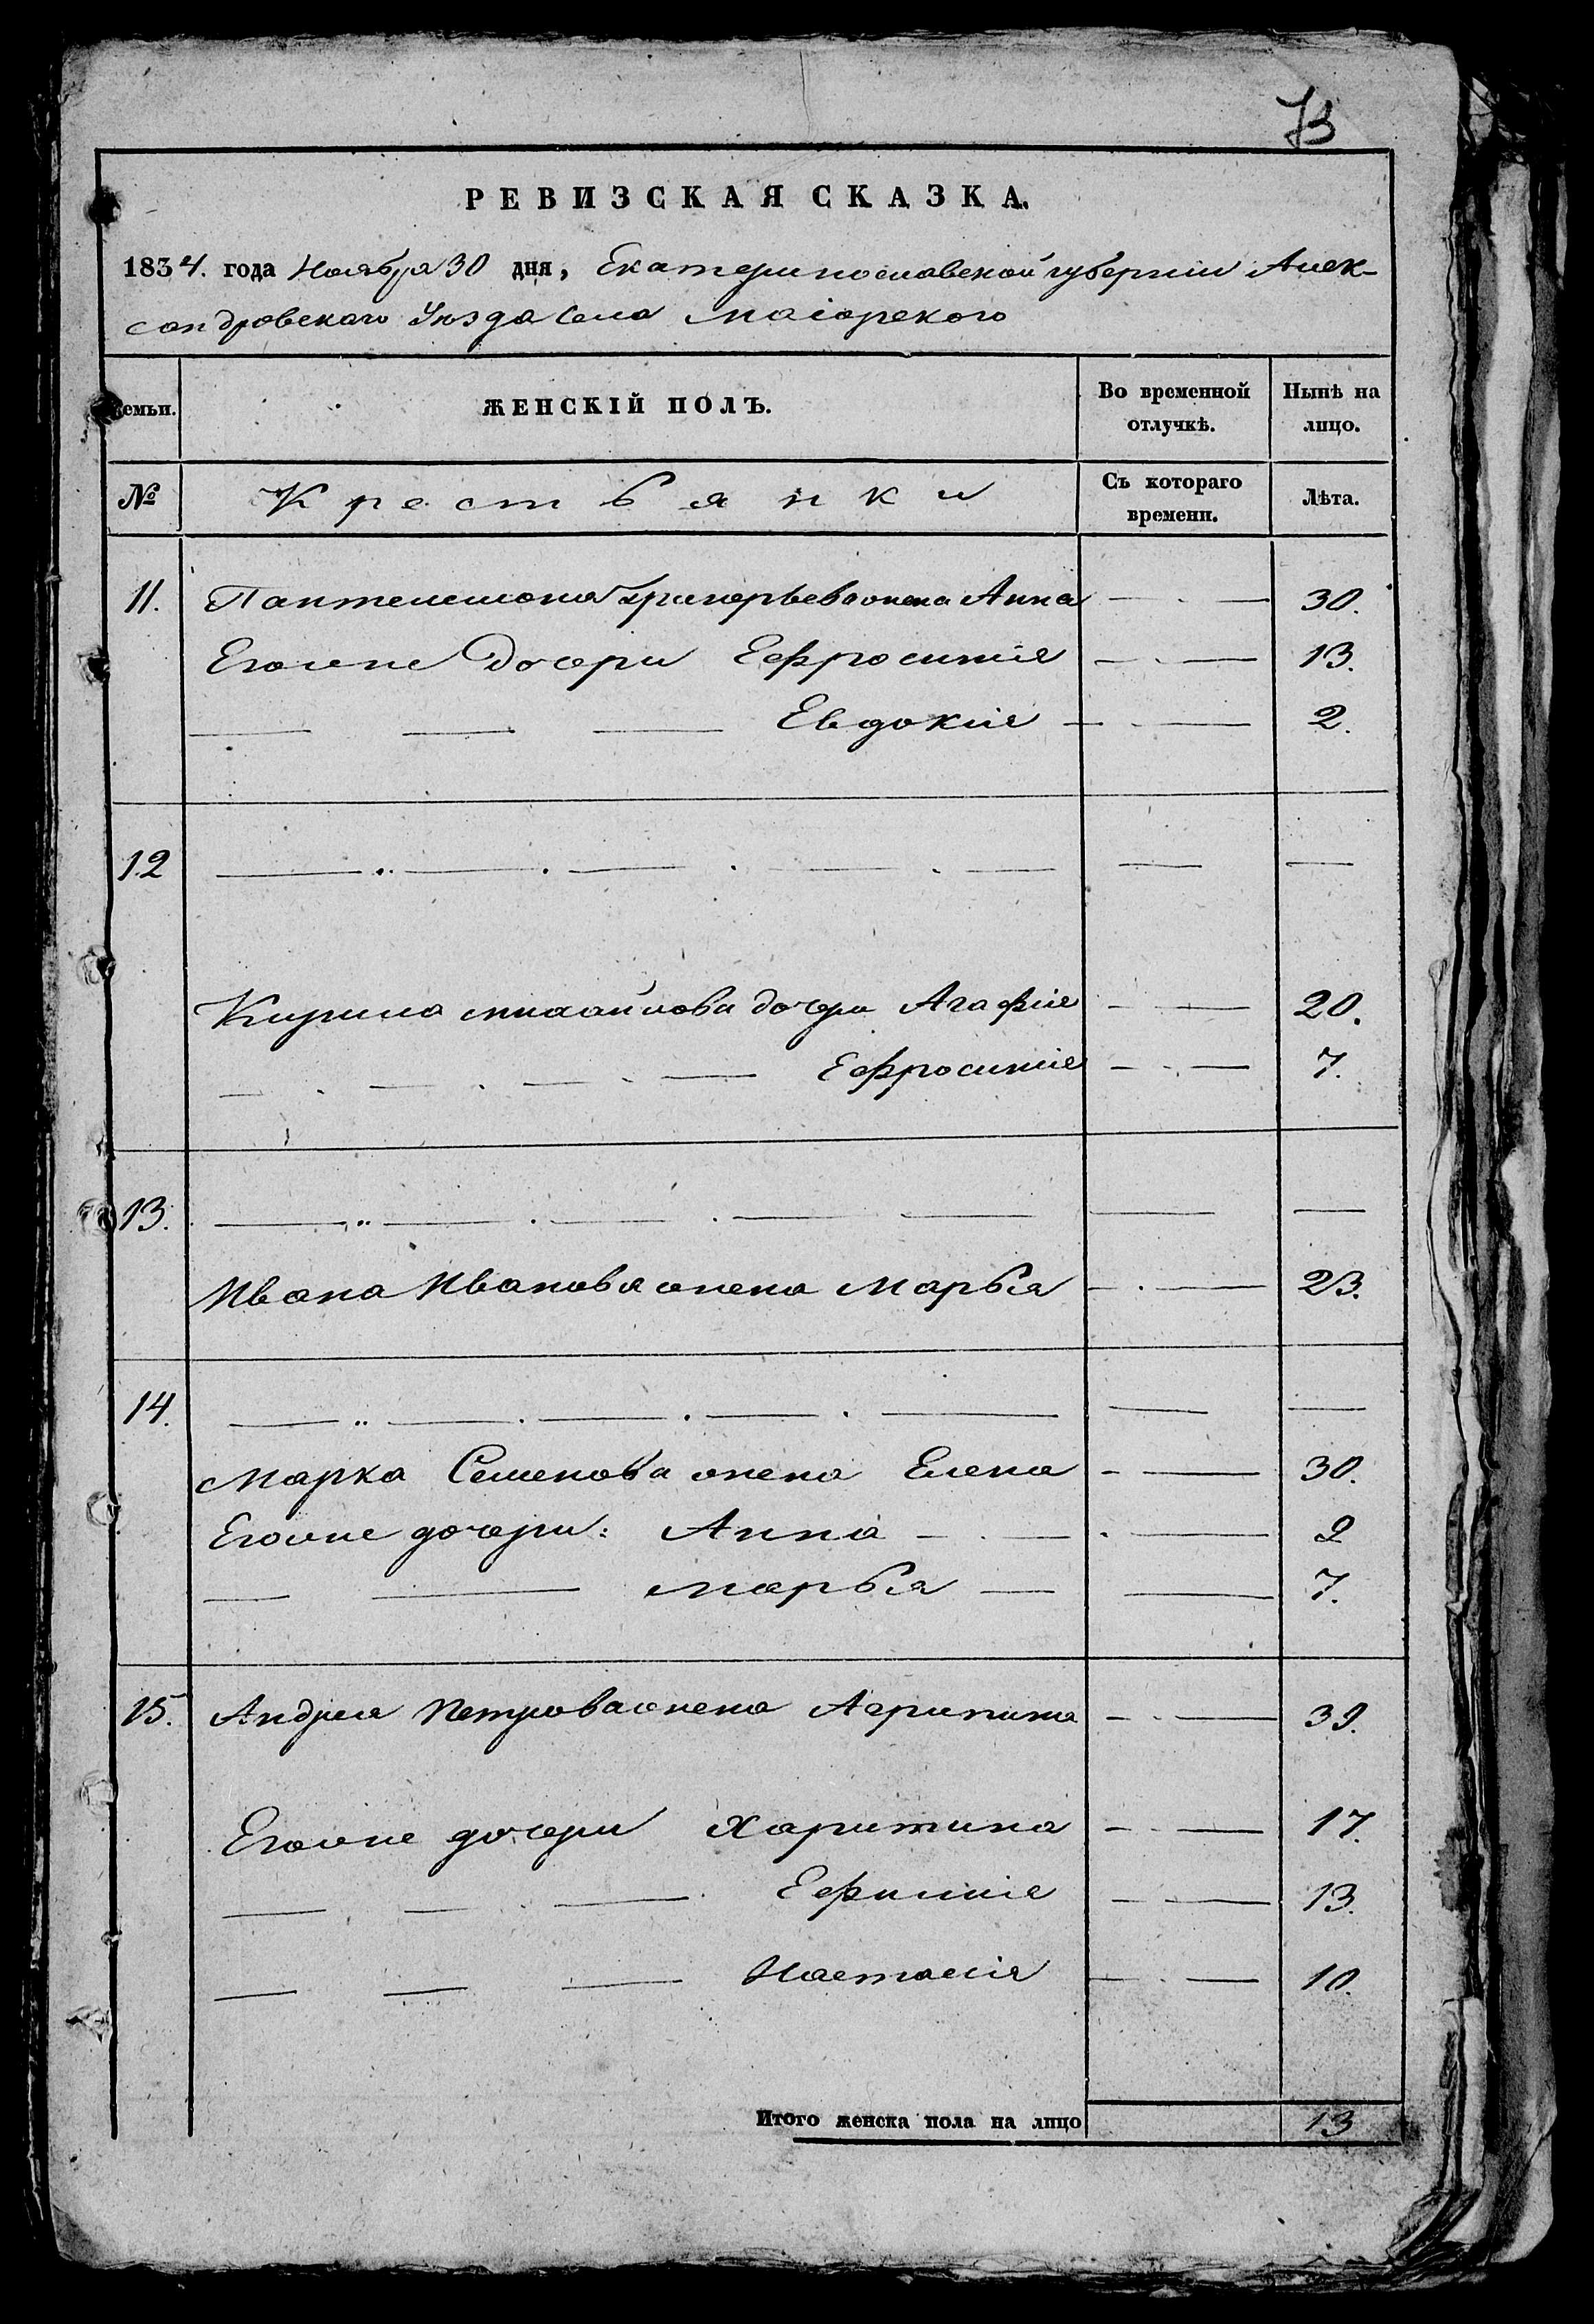 73
РЕВИЗСКАЯ СКАЗКА.
1834. года Ноября 30 дня, Екатеринославской губернии Алек-
сандровскаго Уезда Села Маіорского
Семьи. ЖЕНСКІЙ ПОЛЪ. Во временной отлучкѣ. Нынѣ на лицо.
№ Крестьянки Съ котораго времени. Лѣта.
11. Пантелемона Григорьева жена Анна — . — 30.
Егоже Дочери Ефросинія — . — 13.
— — — Евдокія — . — 2.
12 — .. — . — . — . — — —
Кирила михайлова дочери Агафія — . — 20.
— . — . — . — Ефросинія — . — 7.
13. — .. — . — . — — — —
Ивана Иванова жена Марья — . — 23.
14. — .. — . — . — . — — —
Марка Семенова жена Елена — — 30.
Егоже дочери: Анна — . — . — 9
— — Марья — — 7.
15. Андрея Петрова жена Агрипина — . — 39.
Егоже дочери Харитина — . — 17.
— — . — . Ефимія — . — 13.
— — — Настасія — . — 10.
Итого женска пола на лицо 13